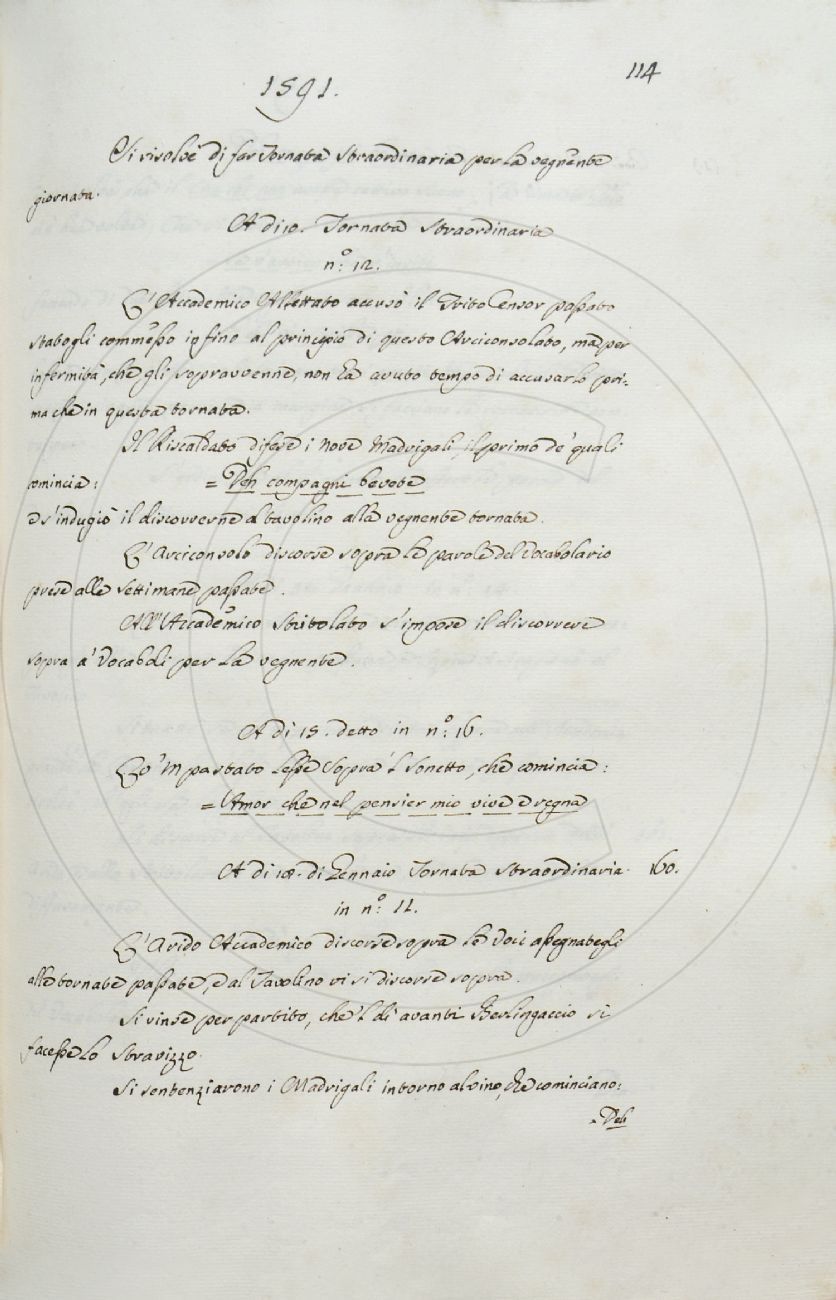 114
1591.
Si risolvé di far Tornata straordinaria per la vegnente
giornata.
A di 10. Tornata straordinaria
n.º 12.
L'Accademico Alfettato accusò il Trito Censor passato
statogli commesso infino al principio di questo Arciconsolato, ma per
infermità, che gli sopravvenne, non ha avuto tempo di accusarlo pri-
ma che in questa tornata.
Il Riscaldato difese i nove Madrigali, il primo de' quali
comincia: = Deh compagni bevete
e s'indugiò il discorrerne al tavolino alla vegnente tornata.
L'Arciconsolo discorse sopra le parole del Vocabolario
prese alle settimane passate.
All'Accademico Stritolato s'impose il discorrere
sopra a' Vocaboli per la vegnente.
A di 15. detto in n.º 16.
Lo 'mpastato lesse sopra 'l sonetto, che comincia:
= Amor che nel pensier mio vive e regna
A di 18. di Gennaio Tornata straordinaria. 160.
in n.º 11.
L'Arido Accademico discorse sopra le Voci assegnategli
alle tornate passate, e al Tavolino vi si discorse sopra.
Si vinse per partito, che 'l dì avanti Berlingaccio si
facesse lo Stravizzo.
Si sentenziarono i Madrigali intorno al vino, che cominciano:
= Deh